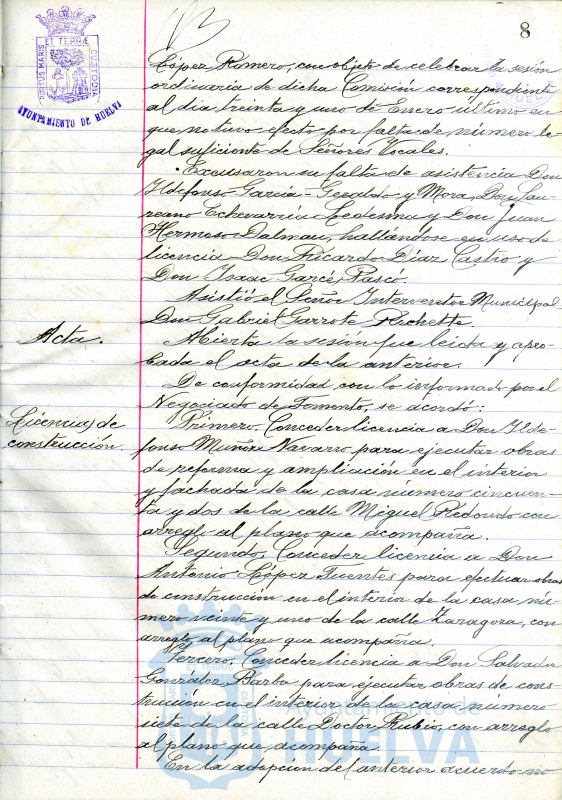 8
PORTUS MARIS ET TERRÆ CUSTODIA
AYUNTAMIENTO DE HUELVA
López Romero, con objeto de celebrar la sesión
ordinaria de dicha Comisión correspondiente
al día treinta y uno de Enero último en
que no tuvo efecto por falta de número le-
gal suficiente de Señores Vocales.
Excusaron su falta de asistencia Don
Ildefonso García-Geraldo y Mora, Don Lau-
reano Echevarría Ledesma y Don Juan
Hermoso Dalmau, hallándose en uso de
licencia Don Ricardo Díaz Castro y
Don Isaac Garcés Pascó.
Asistió el Señor Interventor Municipal
Don Gabriel Garrote Rechette.
Acta.
Abierta la sesión fue leída y apro-
bada el acta de la anterior.
De conformidad con lo informado por el
Negociado de Fomento, se acordó:
Licencias de
construcción.
Primero. Conceder licencia a Don Ilde-
fonso Muñoz Navarro para ejecutar obras
de reforma y ampliación en el interior
y fachada de la casa número cincuen-
ta y dos de la calle Miguel Redondo con
arreglo al plano que acompaña.
Segundo. Conceder licencia a Don
Antonio López Fuentes para efectuar obras
de construcción en el interior de la casa nú-
mero veinte y uno de la calle Zaragoza, con
arreglo al plano que acompaña.
Tercero. Conceder licencia a Don Salvador
González Barba para ejecutar obras de cons-
trucción en el interior de la casa número
siete de la calle Doctor Rubio, con arreglo
al plano que acompaña.
En la adopción del anterior acuerdo no
Ayuntamiento de
HUELVA